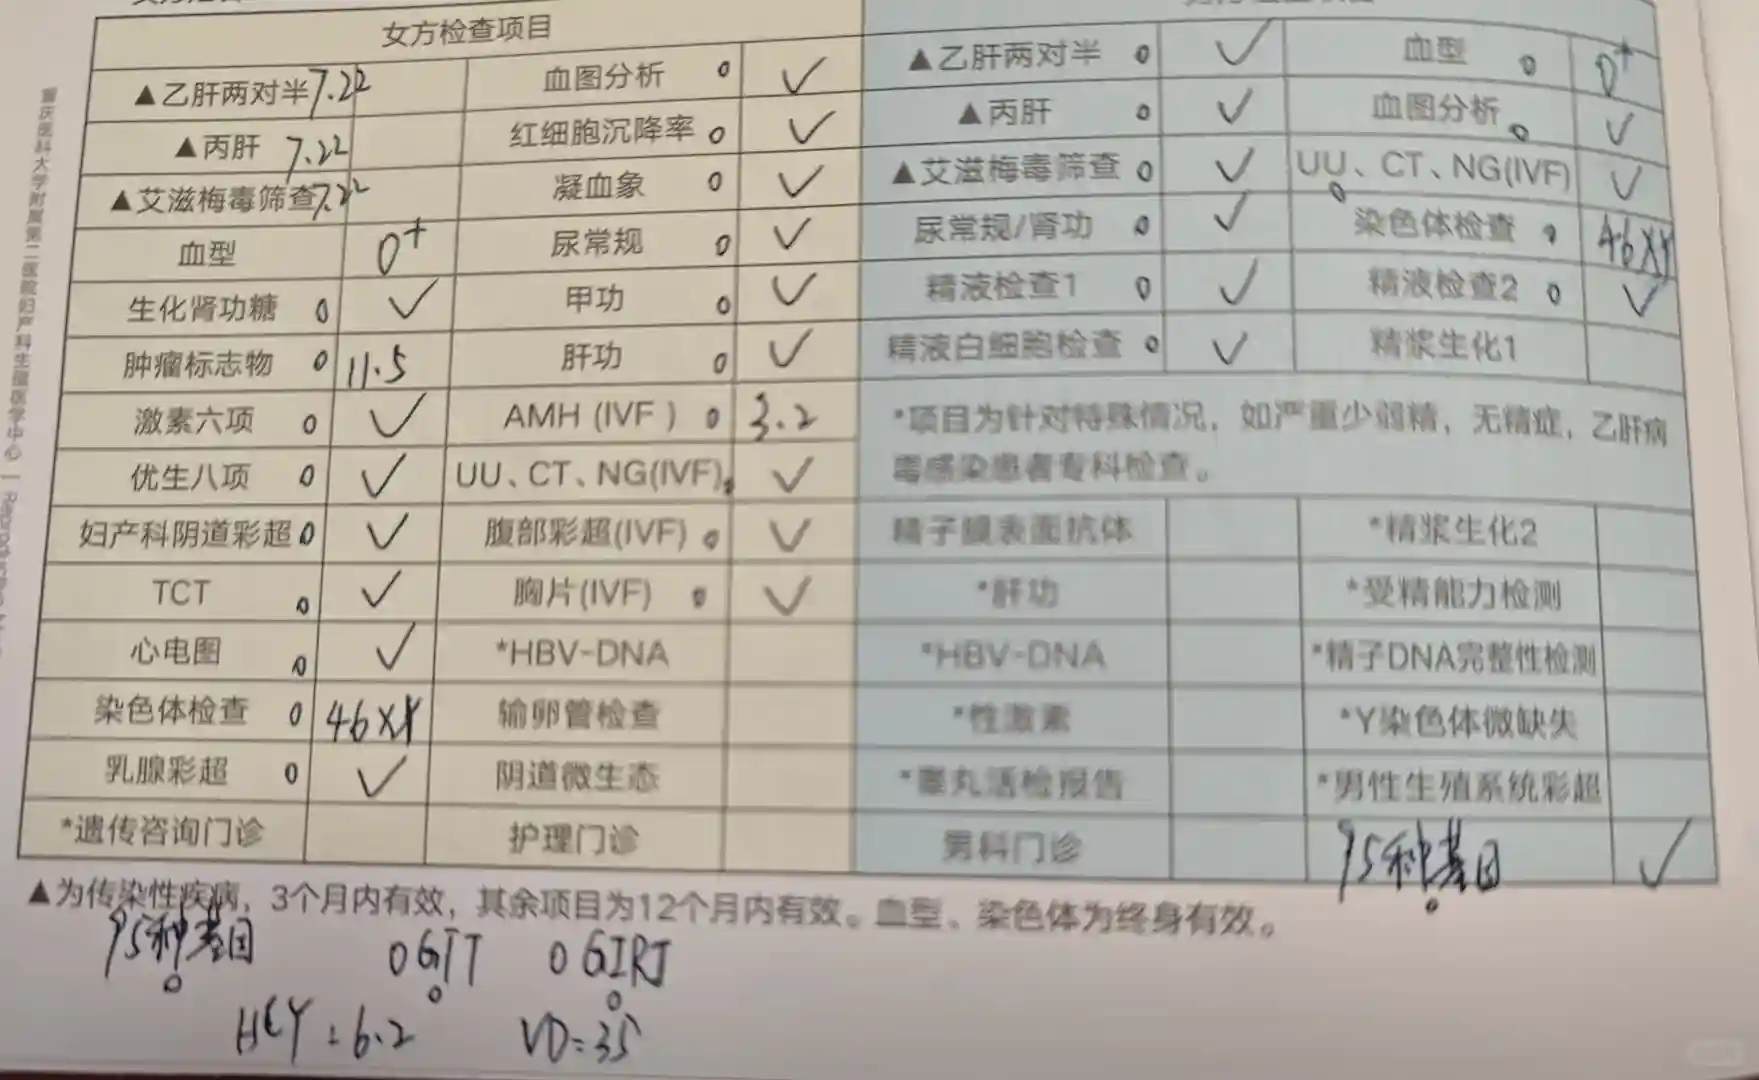 女方检查项目
▲乙肝两对半 7.22 血图分析 o ✓
▲丙肝 7.22 红细胞沉降率 o ✓
▲艾滋梅毒筛查 7.22 凝血象 o ✓
血型 O⁺ 尿常规 o ✓
生化肾功糖 o ✓ 甲功 o ✓
肿瘤标志物 o 11.5 肝功 o ✓
激素六项 o ✓ AMH (IVF ) o 3.2
优生八项 o ✓ UU、CT、NG(IVF) o ✓
妇产科阴道彩超 o ✓ 腹部彩超(IVF) o ✓
TCT o ✓ 胸片(IVF) o ✓
心电图 o ✓ *HBV-DNA
染色体检查 o 46XX 输卵管检查
乳腺彩超 o ✓ 阴道微生态
*遗传咨询门诊 护理门诊
▲乙肝两对半 o ✓ 血型 o O⁺
▲丙肝 o ✓ 血图分析 o ✓
▲艾滋梅毒筛查 o ✓ UU、CT、NG(IVF) o ✓
尿常规/肾功 o ✓ 染色体检查 o 46XY
精液检查1 o ✓ 精液检查2 o ✓
精液白细胞检查 o ✓ 精浆生化1
*项目为针对特殊情况，如严重少弱精，无精症，乙肝病
毒感染患者专科检查。
精子膜表面抗体 *精浆生化2
*肝功 *受精能力检测
*HBV-DNA *精子DNA完整性检测
*性激素 *Y染色体微缺失
*睾丸活检报告 *男性生殖系统彩超
男科门诊 95种基因 o ✓
▲为传染性疾病，3个月内有效，其余项目为12个月内有效。血型、染色体为终身有效。
95种基因 o OGTT o OGIRT o
HCY:6.2 VD=35
重庆医科大学附属第二医院妇产科生殖医学中心